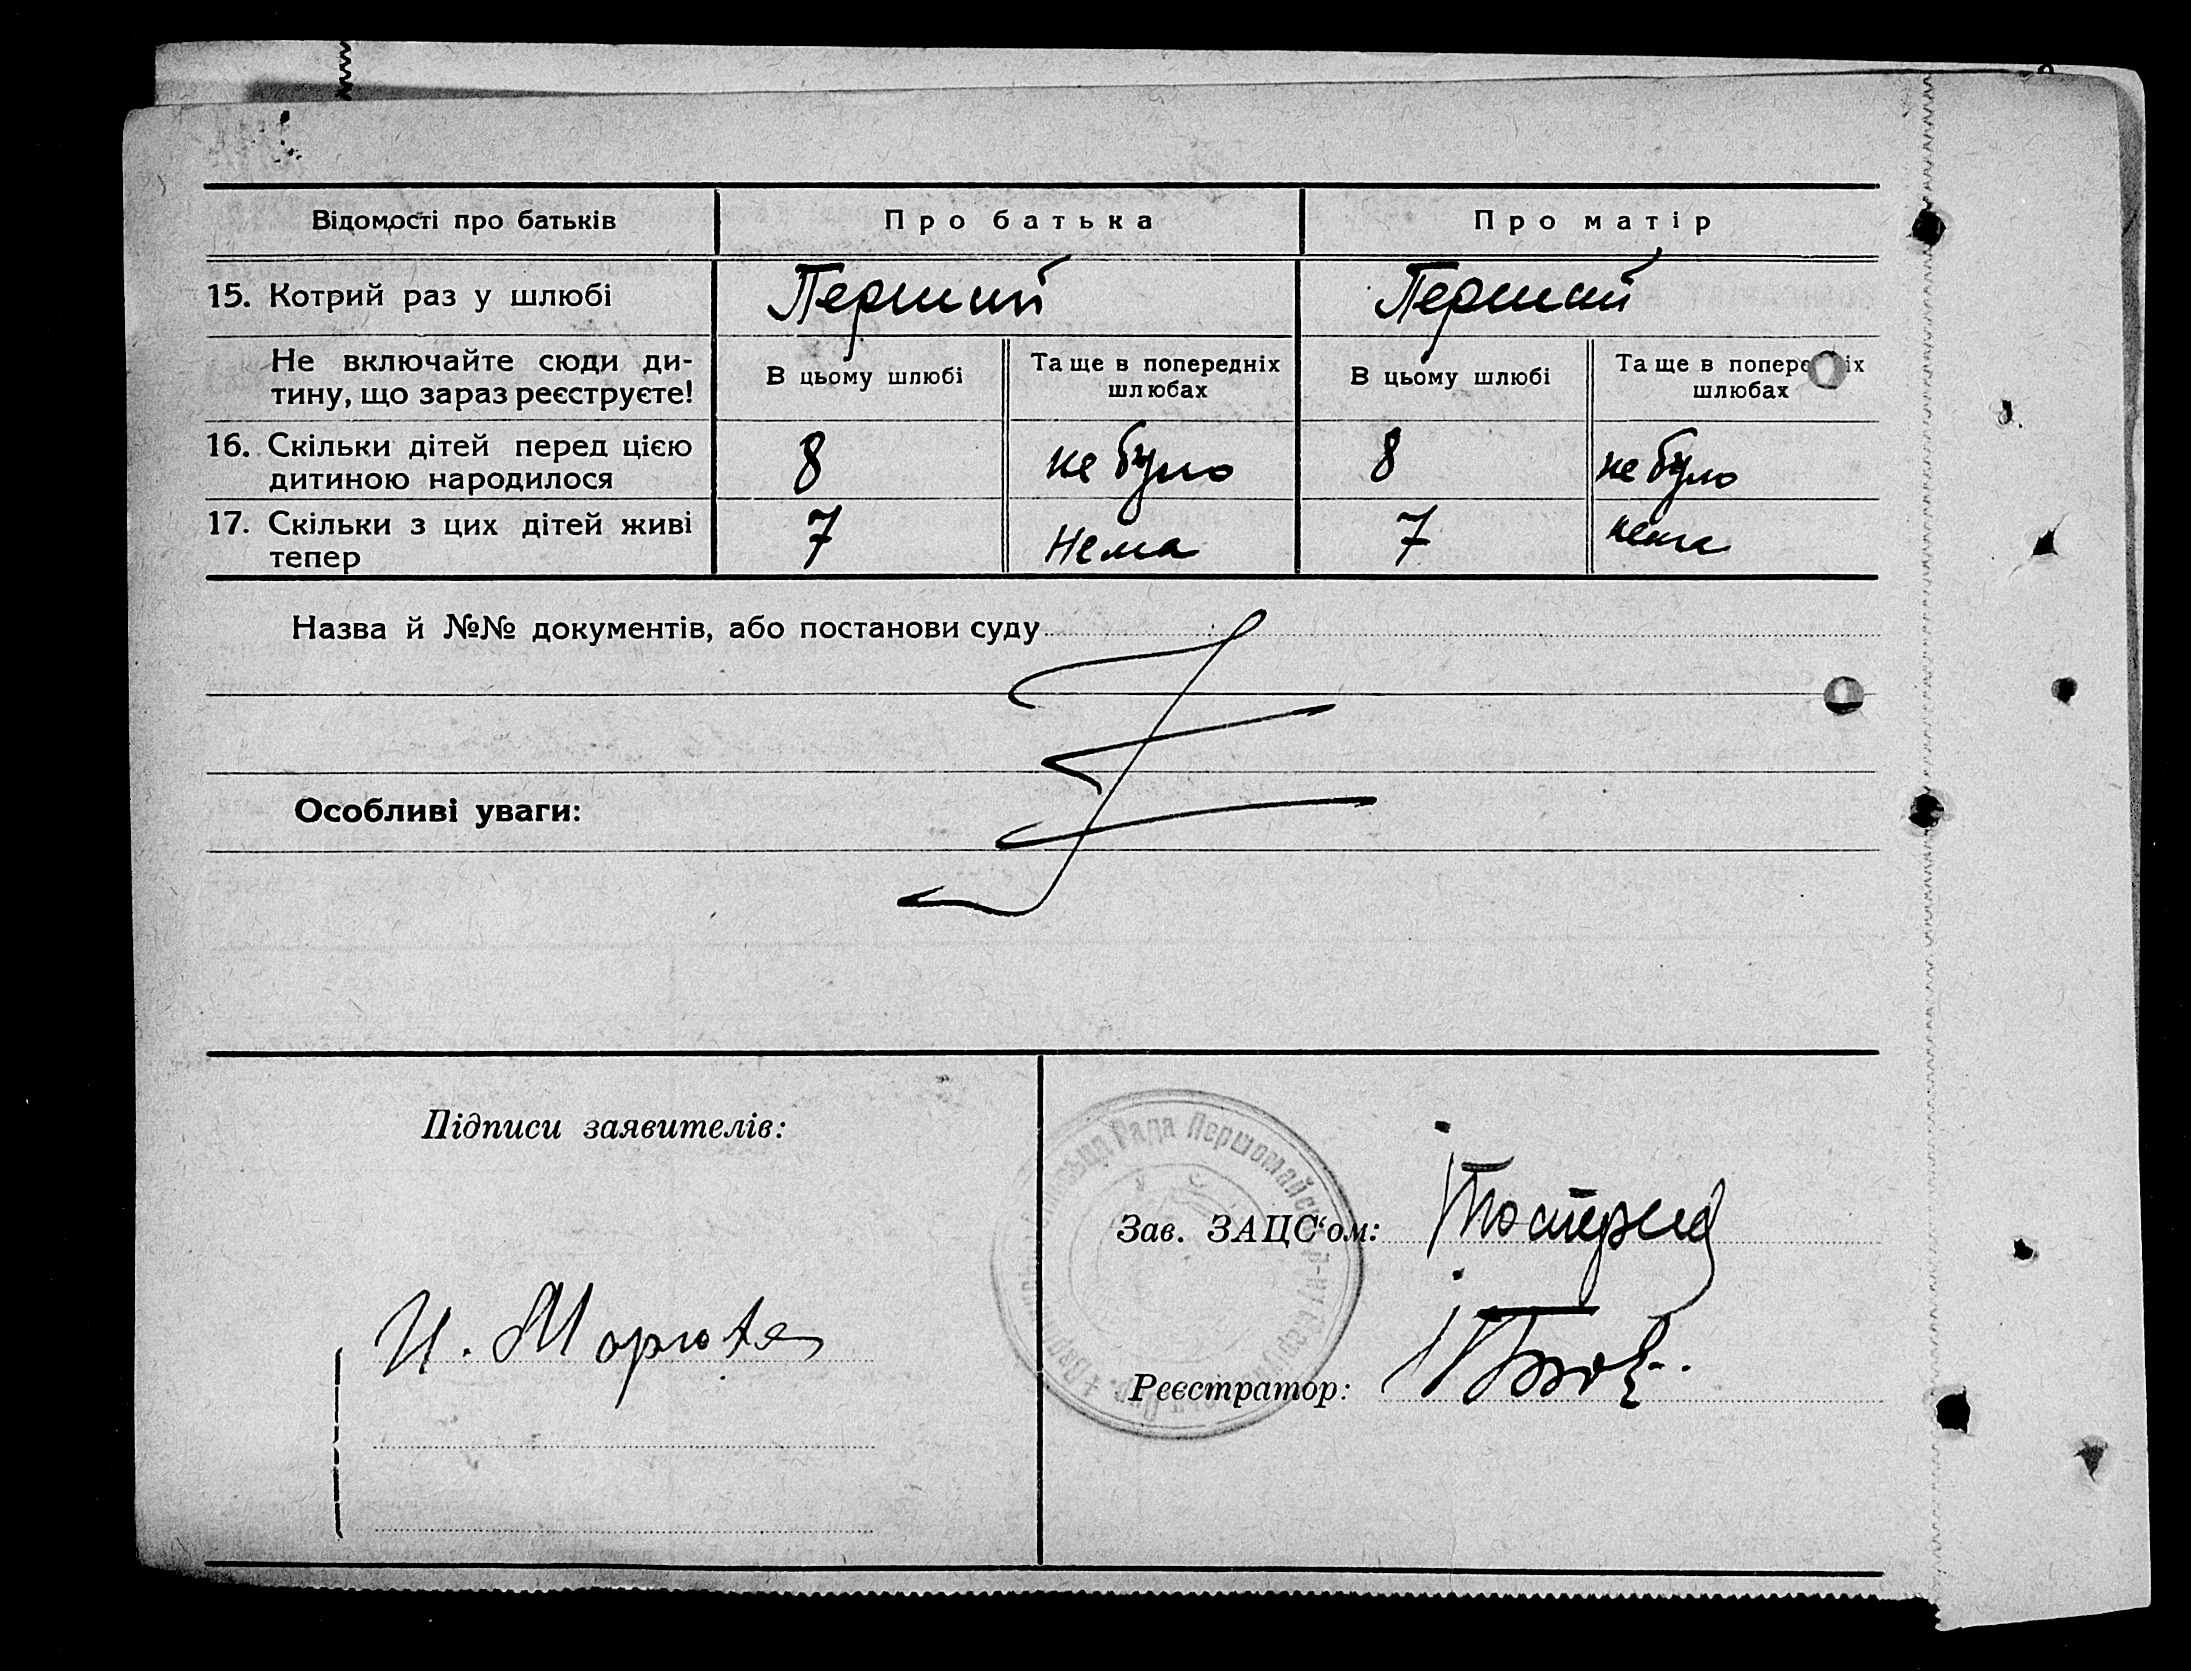 Відомості про батьків
Про батька
Про матір
15. Котрий раз у шлюбі
Перший
Перший
Не включайте сюди ди-
тину, що зараз реєструєте!
В цьому шлюбі
Та ще в попередніх
шлюбах
В цьому шлюбі
Та ще в попере іх
шлюбах
16. Скільки дітей перед цією
дитиною народилося
8
не було
8
не було
17. Скільки з цих дітей живі
тепер
7
Нема
7
нема
Назва й №№ документів, або постанови суду
Особливі уваги:
Підписи заявителів:
Рада Першомайськ
Зав. ЗАЦС‘ом:
И.
Реєстратор: